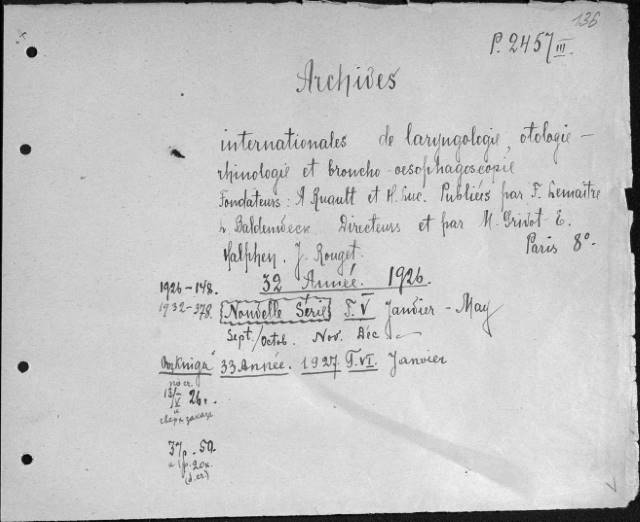 136
P. 2457 III.
Archives
internationales de laryngologie, otologie-
rhinologie et broncho-oesophagoscopie
Fondateurs: A Ruault et H. Luc. Publiées par F. Lemaître
L. Baldenweck Directeurs et par M. Grivot E.
Halphen. J. Rouget. Paris 8º.
1926-148. 32 Année. 1926.
1932-378. {Nouvelle Série} T. V Janvier - May
Sept./Octob. Nov. Déc.
33 Année. 1927. T. VI. Janvier
13/V 26 г.
и
сверх заказа
37р. 50.
и 1р. 20к.